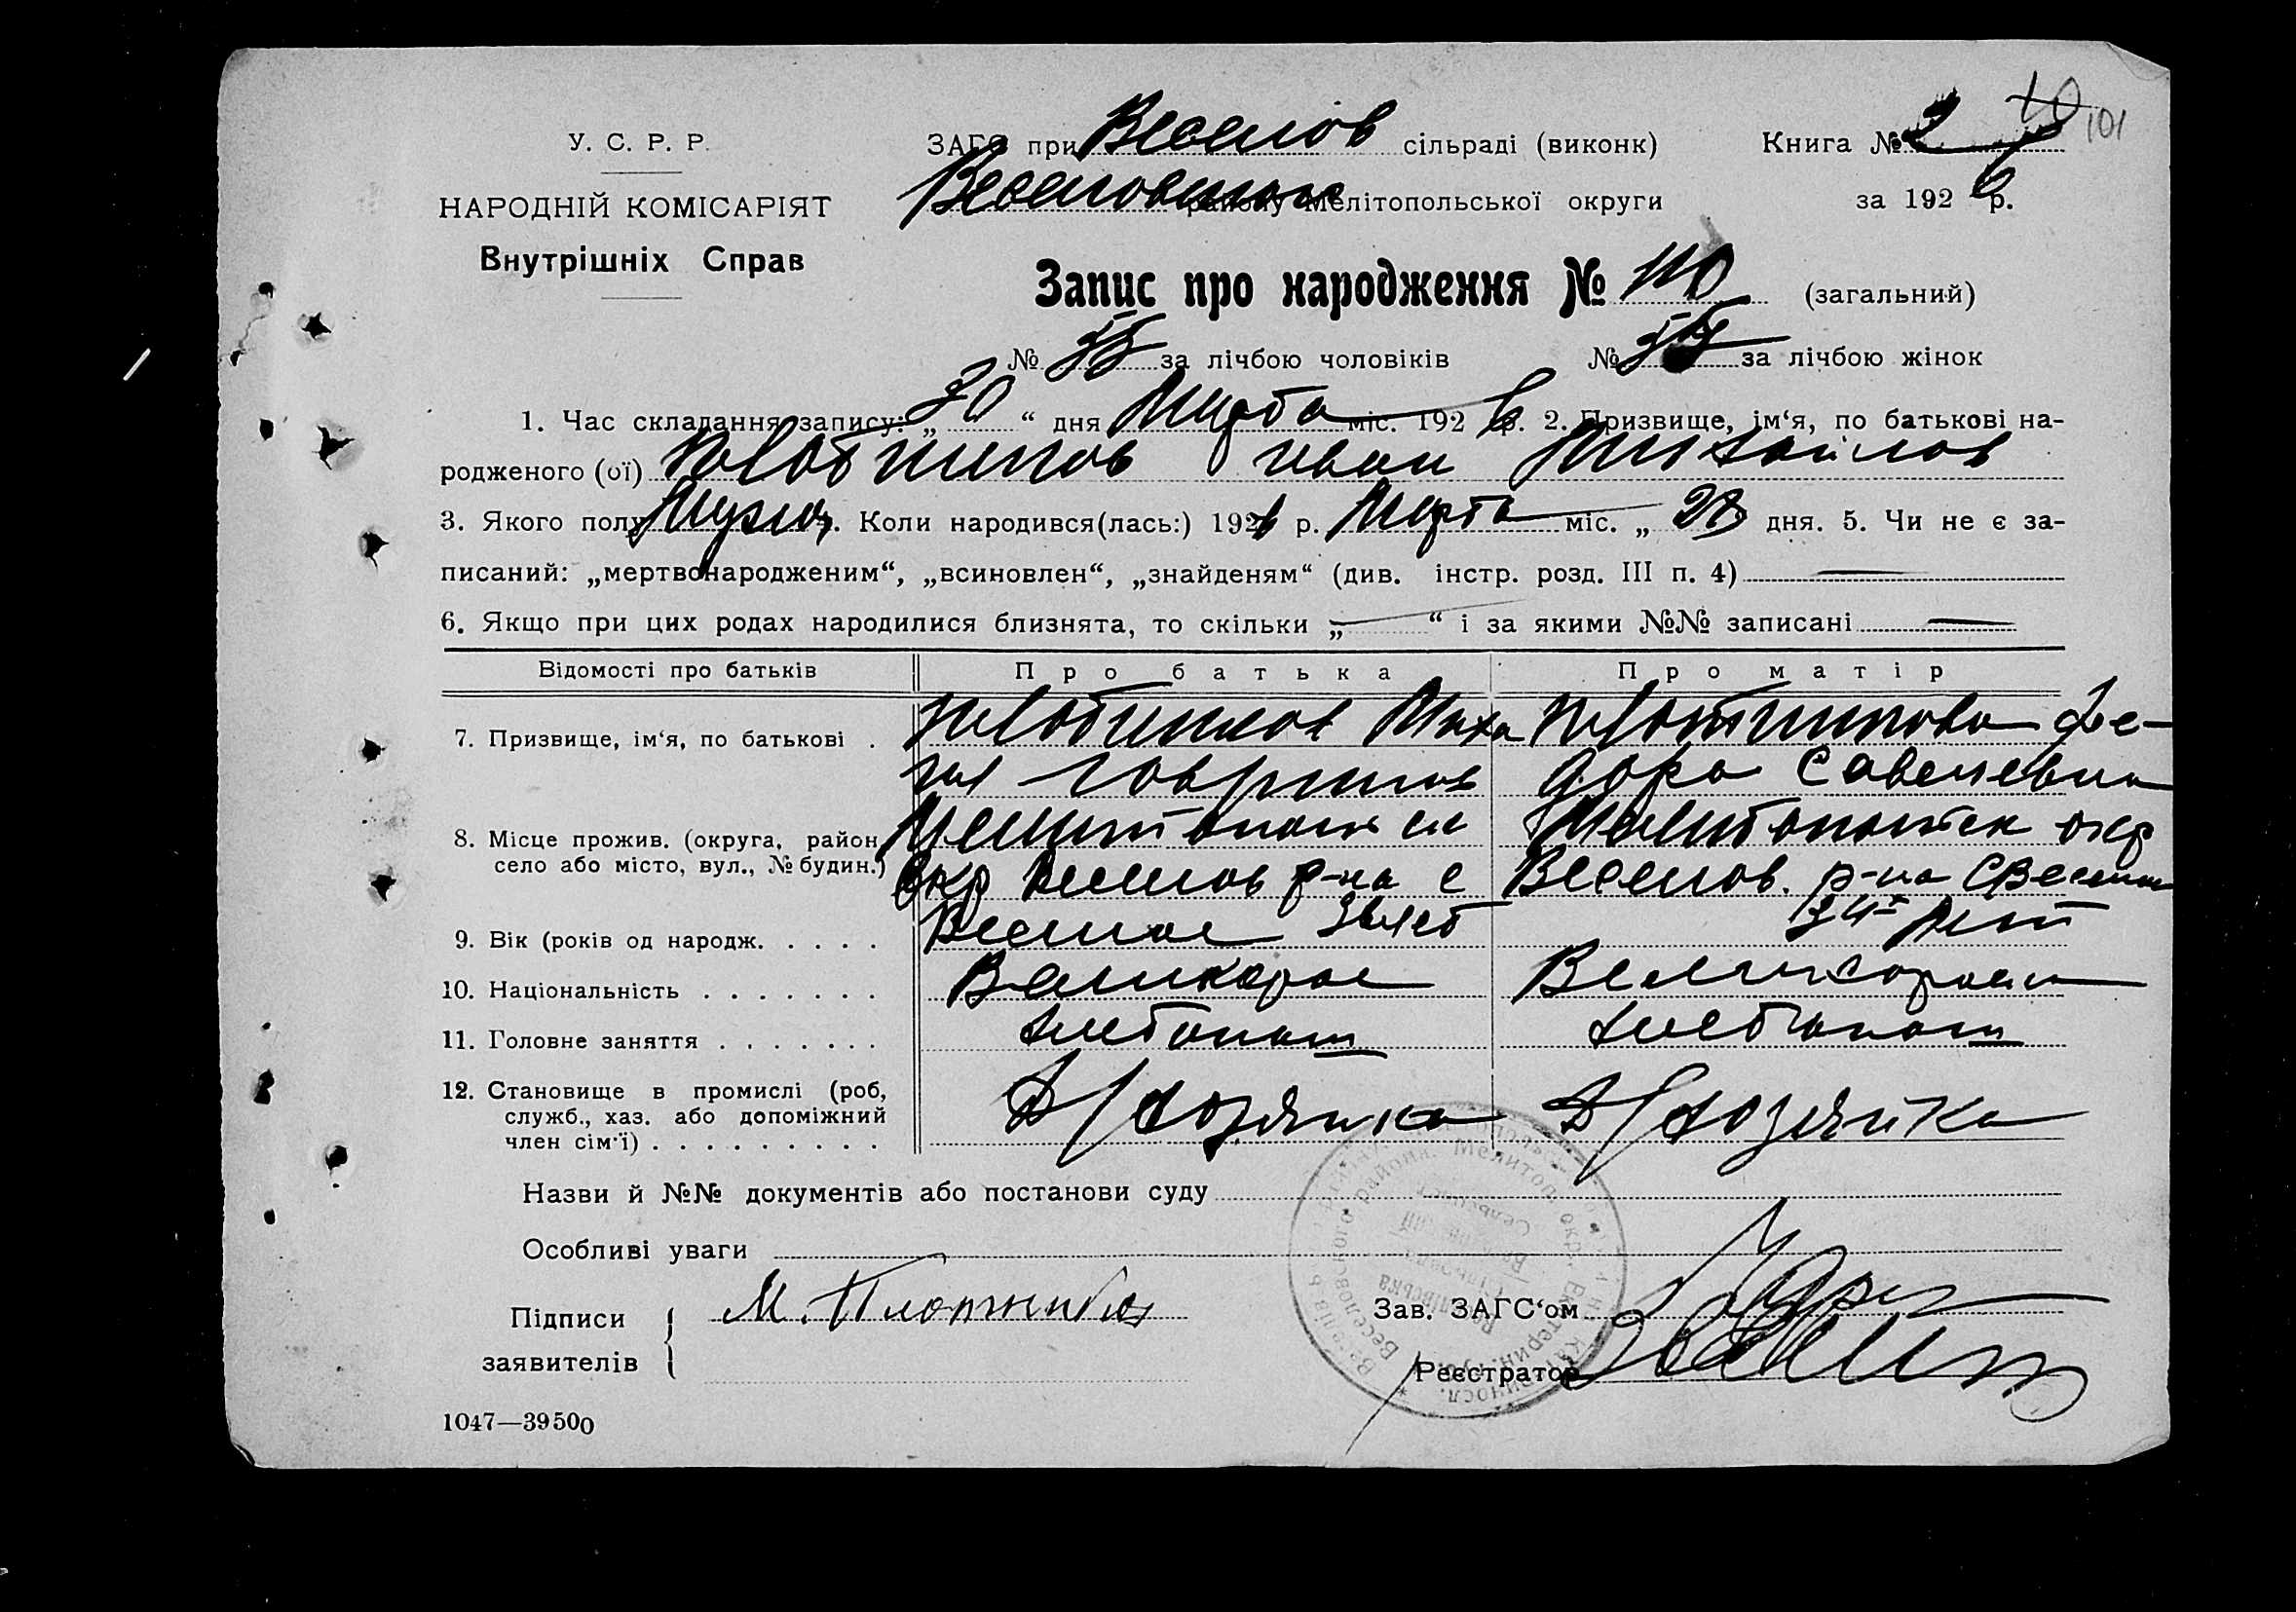 101
У. С. Р. Р.
ЗАГС при Веселов сільраді (виконк) Книга № 2
НАРОДНІЙ КОМІСАРІЯТ
Веселовск району Мелітопольської округи за 1926 р.
Внутрішніх Справ
Запис про народження № 110 (загальний)
№ 55 за лічбою чоловіків № 55 за лічбою жінок
1. Час складання запису: „ 30 “ дня Марта міс. 1926 р. 2. Призвище, ім‘я, по батькові на-
родженого (ої) Плотников Иван Михайлов
3. Якого полу Мужск. Коли народився(лась:) 1926 р. Марта міс. „ 28 дня. 5. Чи не є за-
писаний: „мертвонародженим“, „всиновлен“, „знайденям“ (див. інстр. розд. III п. 4)
6. Якщо при цих родах народилися близнята, то скільки „ “ і за якими №№ записані
Відомості про батьків Про батька Про матір
7. Призвище, ім‘я, по батькові . Плотников Миха Плотникова Фе-
ил Гаврилов дора Савельевна
8. Місце прожив. (округа, район, Мелитопольск Мелитопольск окр
село або місто, вул., № будин.) окр Веселов р-на с Веселов. р-на с Веселое
9. Вік (років од народж. . . . . Веселое лет 34 лет
10. Національність . . . . . . . Великорос Великоросска
11. Головне заняття . . . . . . . хлебопаш хлебопаш
12. Становище в промислі (роб, Д/хозяйка Д/хозяйка
служб., хаз. або допоміжний
член сім‘ї) . . . . . . . . .
Назви й №№ документів або постанови суду
Особливі уваги
Підписи М. Плотников Зав. ЗАГС‘ом
заявителів Реєстратор
1047—39500